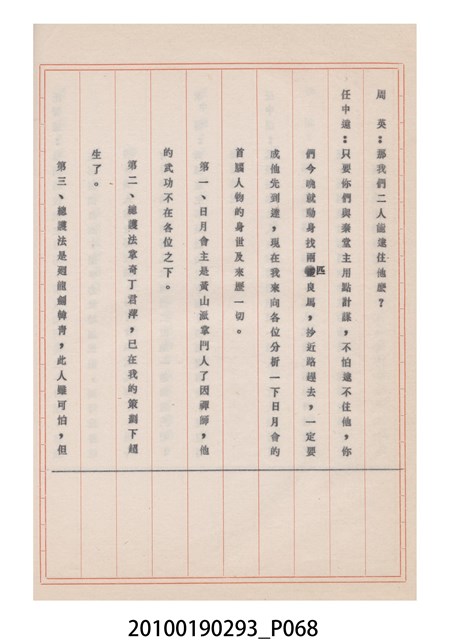 周　英：那我們二人能逮住他麽？
任中遠：只要你們與秦堂主用點計謀，不怕逮不住他，你
們今晚就動身找兩匹良馬，抄近路趕去，一定要
成他先到達，現在我來向各位分析一下日月會的
首腦人物的身世及來歷一切。
第一、日月會主是黃山派掌門人了因禪師，他
的武功不在各位之下。
第二、總護法拿奇丁君澤，已在我的策劃下超
生了。
第三、總護法是廻龍劍韓青，此人雖可怕，但
20100190293_P068